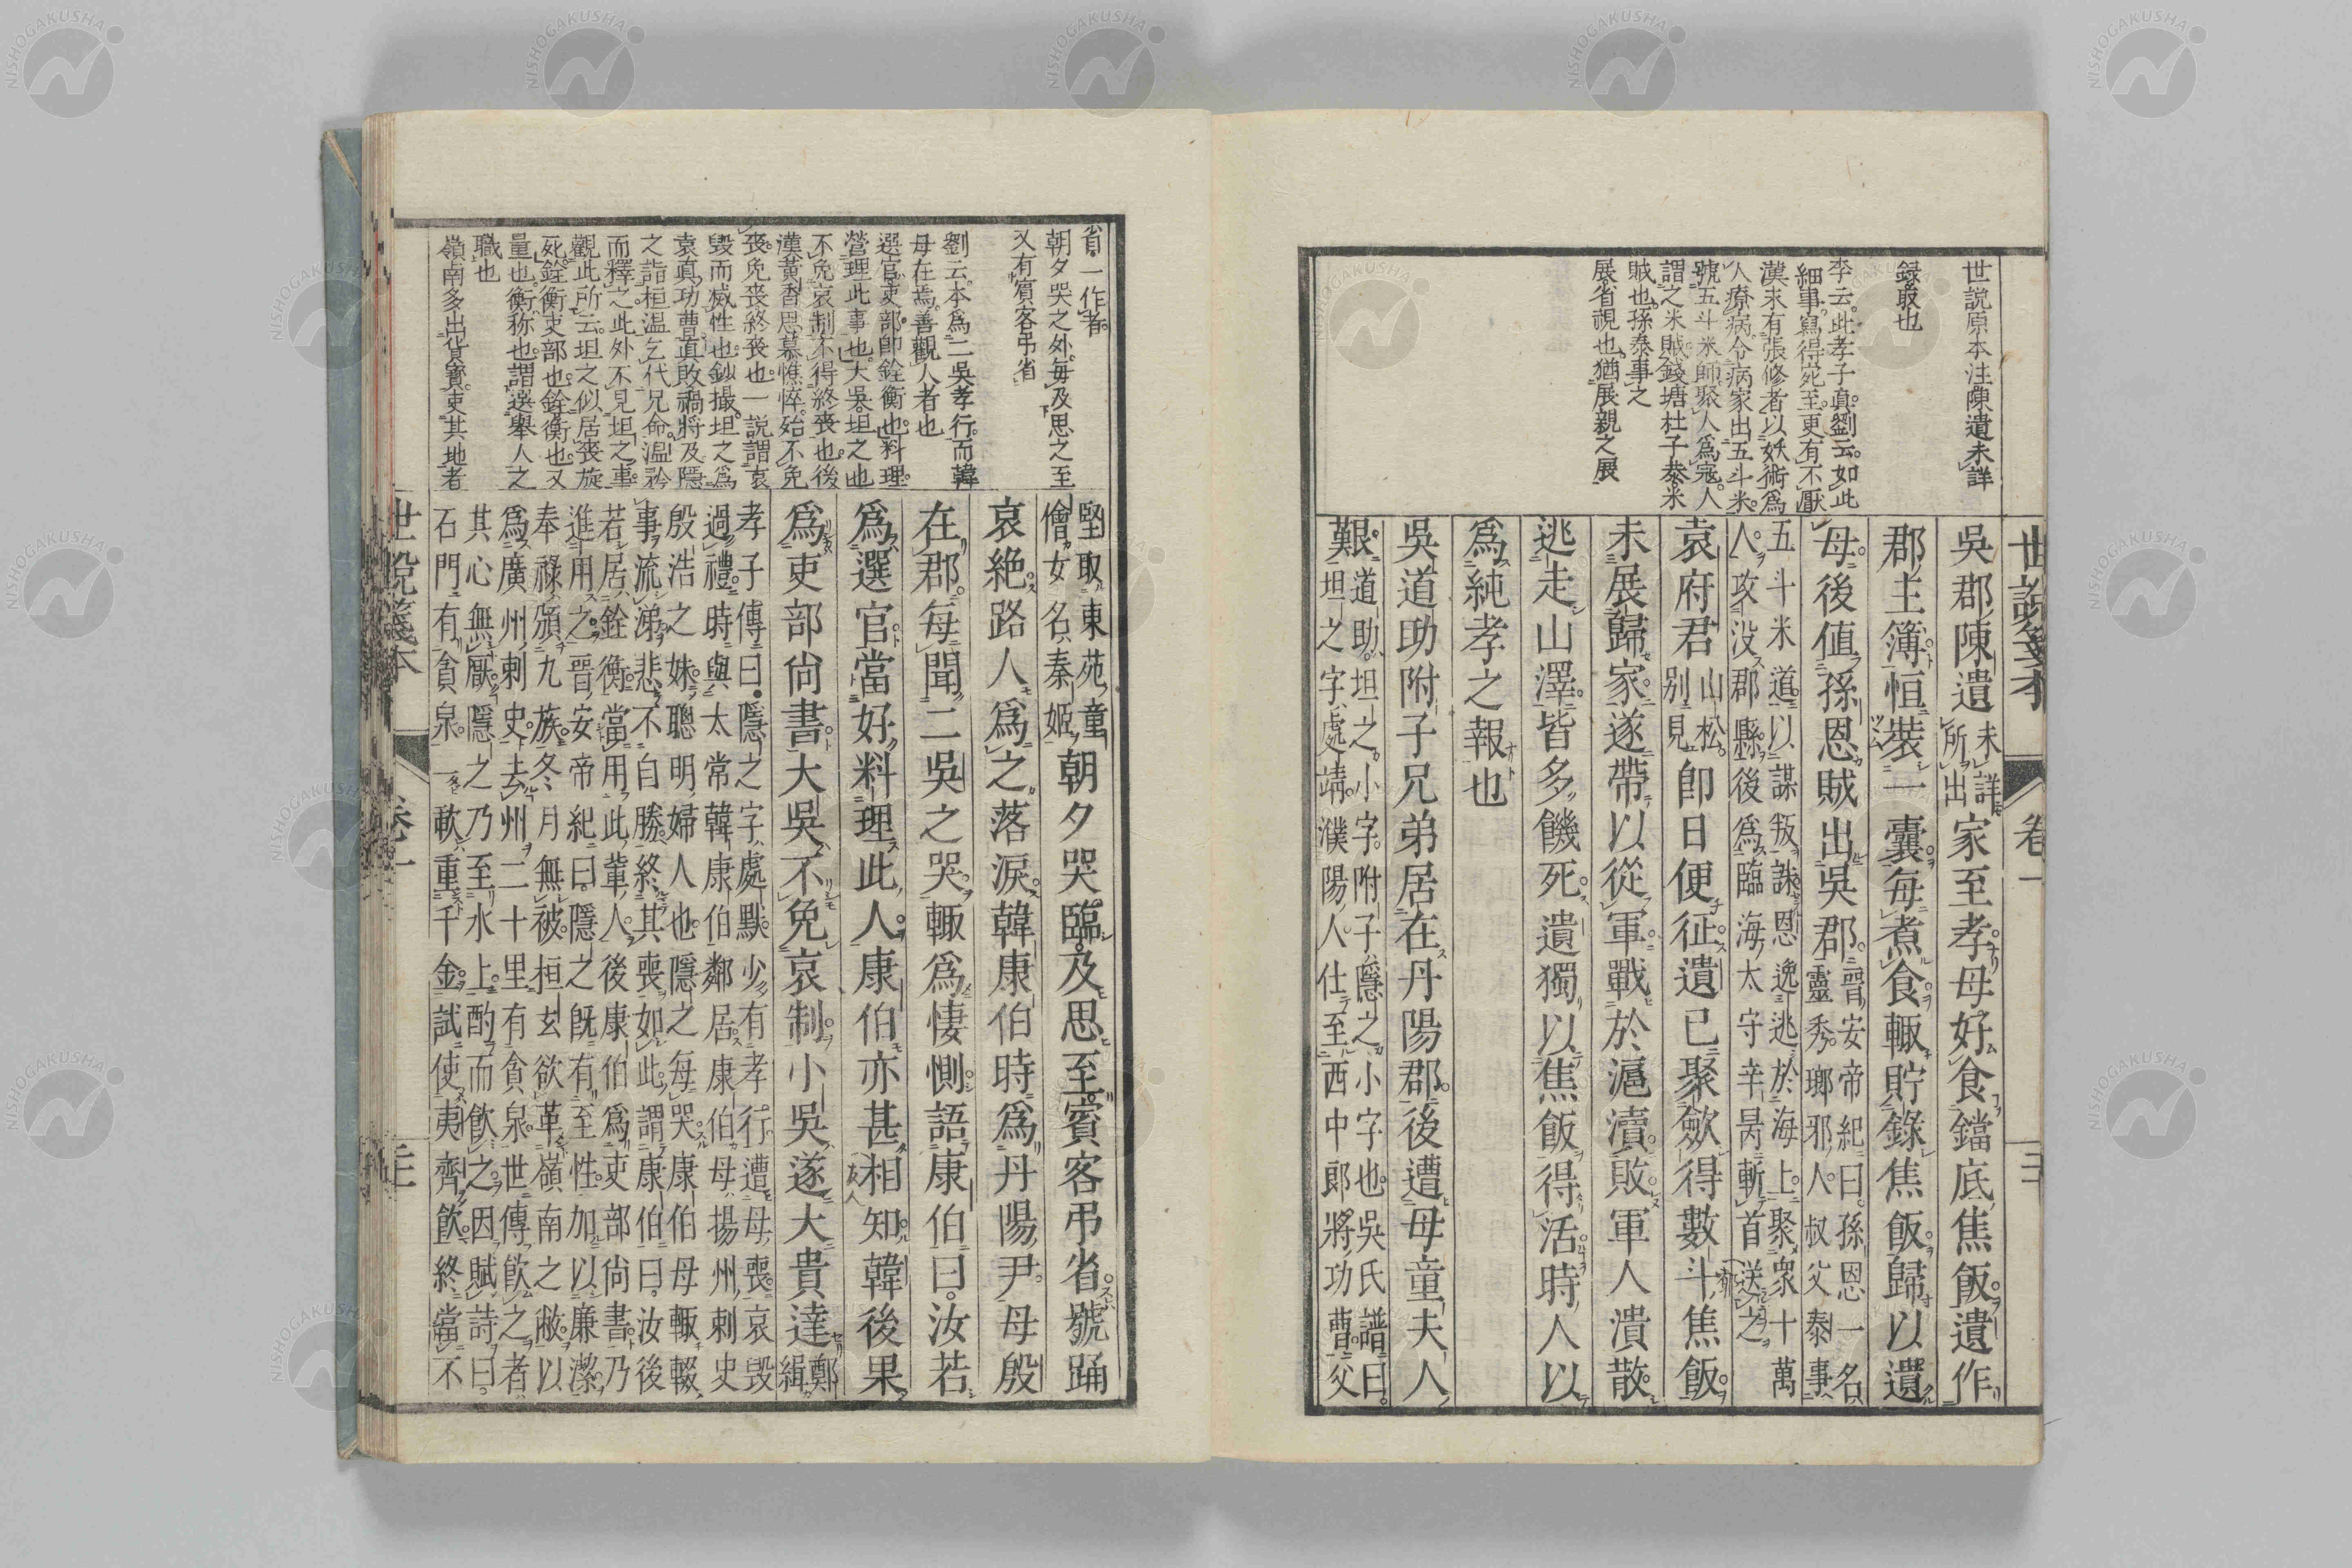 世說箋本
卷一
世說原本注陳遺未詳
錄取也
李云此孝子真劉云如此
細事寫得宛至更有不厭
漢末有張修者以妖術為
人療病令病家出五斗米
號五斗米師聚人為寇人
謂之米賊錢塘杜子恭米
賊也孫泰事之
展省視也猶展親之展
吳郡陳遺未詳所出家至孝母好食鐺底焦飯遺作
郡主簿恒裝一囊每煮食輙貯錄焦飯歸以遺
母後值孫恩賊出吳郡晉安帝紀曰孫恩一名靈秀瑯邪人叔父泰事
五斗米道以謀叛誅恩逸逃於海上聚衆十萬
人攻没郡縣後為臨海太守辛昺斬首送之
袁府君山松別見卽日便征遺已聚斂得數斗焦飯
未展歸家遂帶以從軍戰於滬瀆敗軍人潰散
逃走山澤皆多饑死遺獨以焦飯得活時人以
為純孝之報也
吳道助附子兄弟居在丹陽郡後遭母童夫人
道助坦之小字附子隱之小字也吳氏譜曰
艱坦之字處靖濮陽人仕至西中郎將功曹父
省一作者
朝夕哭之外每及思之至
又有賓客弔省
劉云本為二吳孝行而韓
母在焉善觀人者也
選官吏部卽銓衡也料理
營理此事也大吳坦之也
不免哀制不得終喪也後
漢黃香思慕憔悴殆不免
喪免喪終喪也一說謂哀
毀而滅性也鈔撮坦之為
袁真功曹真敗禍將及隱
之詣桓溫乞代兄命溫矜
而釋之此外不見坦之事
觀此所云坦之似居喪旋
死銓衡吏部也銓衡也又
量也衡称也謂選舉人之
職也
嶺南多出貨寶吏其地者
堅取東苑童
儈女名秦姬朝夕哭臨及思至賓客弔省號踊
哀絶路人為之落淚韓康伯時為丹陽尹母殷
在郡每聞二吳之哭輙為悽惻語康伯曰汝若
為選官當好料理此人康伯亦甚相知韓後果
為吏部尙書大吳不免哀制小吳遂大貴達鄭緝
孝子傳曰隱之字處默少有孝行遭母喪哀毀
過禮時與太常韓康伯鄰居康伯母揚州刺史
殷浩之妹聰明婦人也隱之每哭康伯母輙輟
事流涕悲不自勝終其喪如此謂康伯曰汝後
若居銓衡當用此輩人後康伯為吏部尙書乃
進用之晉安帝紀曰隱之既有至性加以廉潔
奉祿頒九族冬月無被桓玄欲革嶺南之敝以
為廣州刺史去州二十里有貪泉世傳飲之者
其心無厭隱之乃至水上酌而飲之因賦詩曰
石門有貪泉一歃重千金試使夷齊飲終當不
世說箋本
卷一